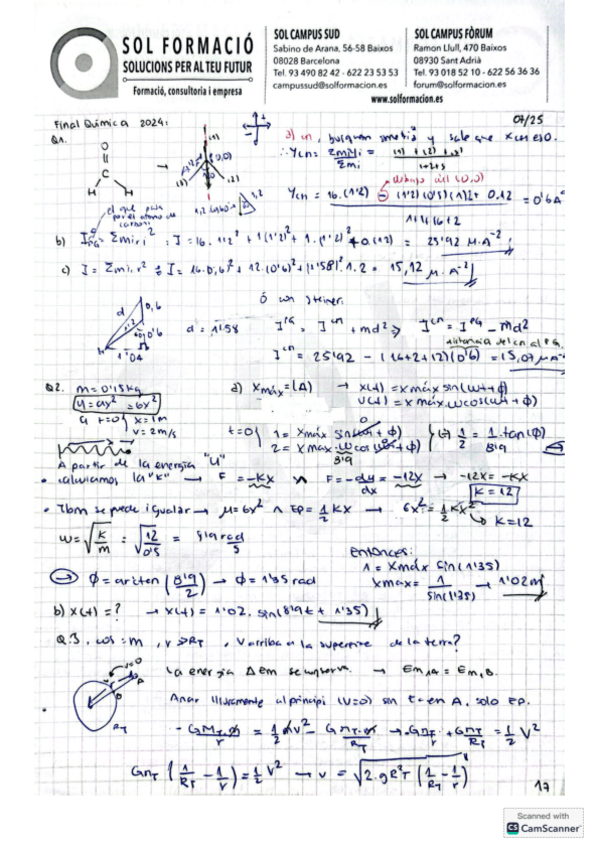 SOL FORMACIÓ
SOLUCIONS PER AL TEU FUTUR
Formació, consultoria i empresa
SOL CAMPUS SUD
Sabino de Arana, 56-58 Baixos
08028 Barcelona
Tel. 93 490 82 42 - 622 23 53 53
campussud@solformacion.es
SOL CAMPUS FÒRUM
Ramon Llull, 470 Baixos
08930 Sant Adrià
Tel. 93 018 52 10 - 622 56 36 36
forum@solformacion.es
www.solformacion.es
Final Química 2024:
07/25
Q1.
O
C
H H
a) cn, buscan simetria y sale que xcn es 0.
∴ Ycn =
Ycn = 16·(1'2) - (1'2)(0'5)(1)2+ 0.12 = 0'6 A
1+1+16+2
b) I = Σmiri² : I = 16·1'2² + 1(1'2)² + 1·(1'2)² + 0·(12) = 25'92 μ·A⁻²
c) I = Σmi·r² : I = 16·0,6² + 12·(0'6)² + (1'58)²·1·2 = 15,12 μ·A⁻²
Ó un Steiner.
d
0,6
1'2
0'6
1'04
d = 1'58
I^PG = I^cn + md² → I^cn = I^PG - md²
distancia del cn al PG
I^cn = 25'92 - (16+2+12)(0'6) = 15,07 μA⁻²
Q2. m = 0'15kg
U = ax² = 6x²
a t=0 x=1m
v=2m/s
a) xmáx = (A) → x(t) = xmáx sin(ωt + ϕ)
v(t) = xmáx·ωcos(ωt + ϕ)
t=0 1 = xmáx sin(ω0 + ϕ)
2 = xmax·ω cos(ω0 + ϕ)
8'9
1/2 = 1·tan(ϕ)/8'9
A partir de la energia "U"
• calculamos la "K" → F = -Kx F = -du/dx = -12x → -12x = -Kx
K = 12
• Tbm se puede igualar → μ=6x² ∧ Ep = 1/2 Kx → 6x² = 1/2 Kx²
→ K=12
ω = √(K/m) = √(12/0'15) = 8'9 rad/s
Entonces:
1 = xmáx sin(1'35)
→ ϕ = arcten (8'9/2) → ϕ = 1'35 rad
xmax = 1/sin(1'35) → 1'02m
b) x(t) = ? → x(t) = 1'02·sin(8'9t + 1'35)
Q.3. cos = m, r > RT, V arriba a la superficie de la terra?
La energia Δ Em se conserva. → Em,A = Em,B.
A
B
RT
-GMT·m/r = 1/2 mv² - GMT·m/RT → -GmT/r + GmT/RT = 1/2 V²
GmT (1/RT - 1/r) = 1/2 V² → v = √(2·gR²T (1/RT - 1/r))
17
Scanned with
CS CamScanner